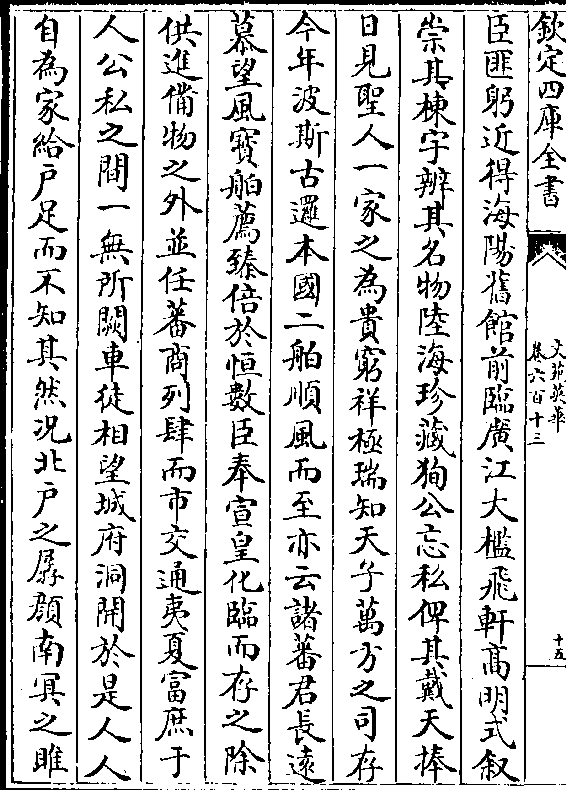 欽定四庫全書
文苑英華
卷六百十三
十五
臣匪躬近得海陽舊館前臨廣江大檻飛軒高明式叙
崇其棟宇辨其名物陸海珍藏狥公忘私俾其戴天捧
日見聖人一家之為貴窮祥極瑞知天子萬方之司存
今年波斯古邏本國二舶順風而至亦云諸蕃君長遠
慕望風寳舶薦臻倍於恒數臣奉宣皇化臨而存之除
供進備物之外並任蕃商列肆而市交通夷夏富庶于
人公私之間一無所闕車徒相望城府洞開於是人人
自為家給户足而不知其然况北户之孱顔南㝠之睢